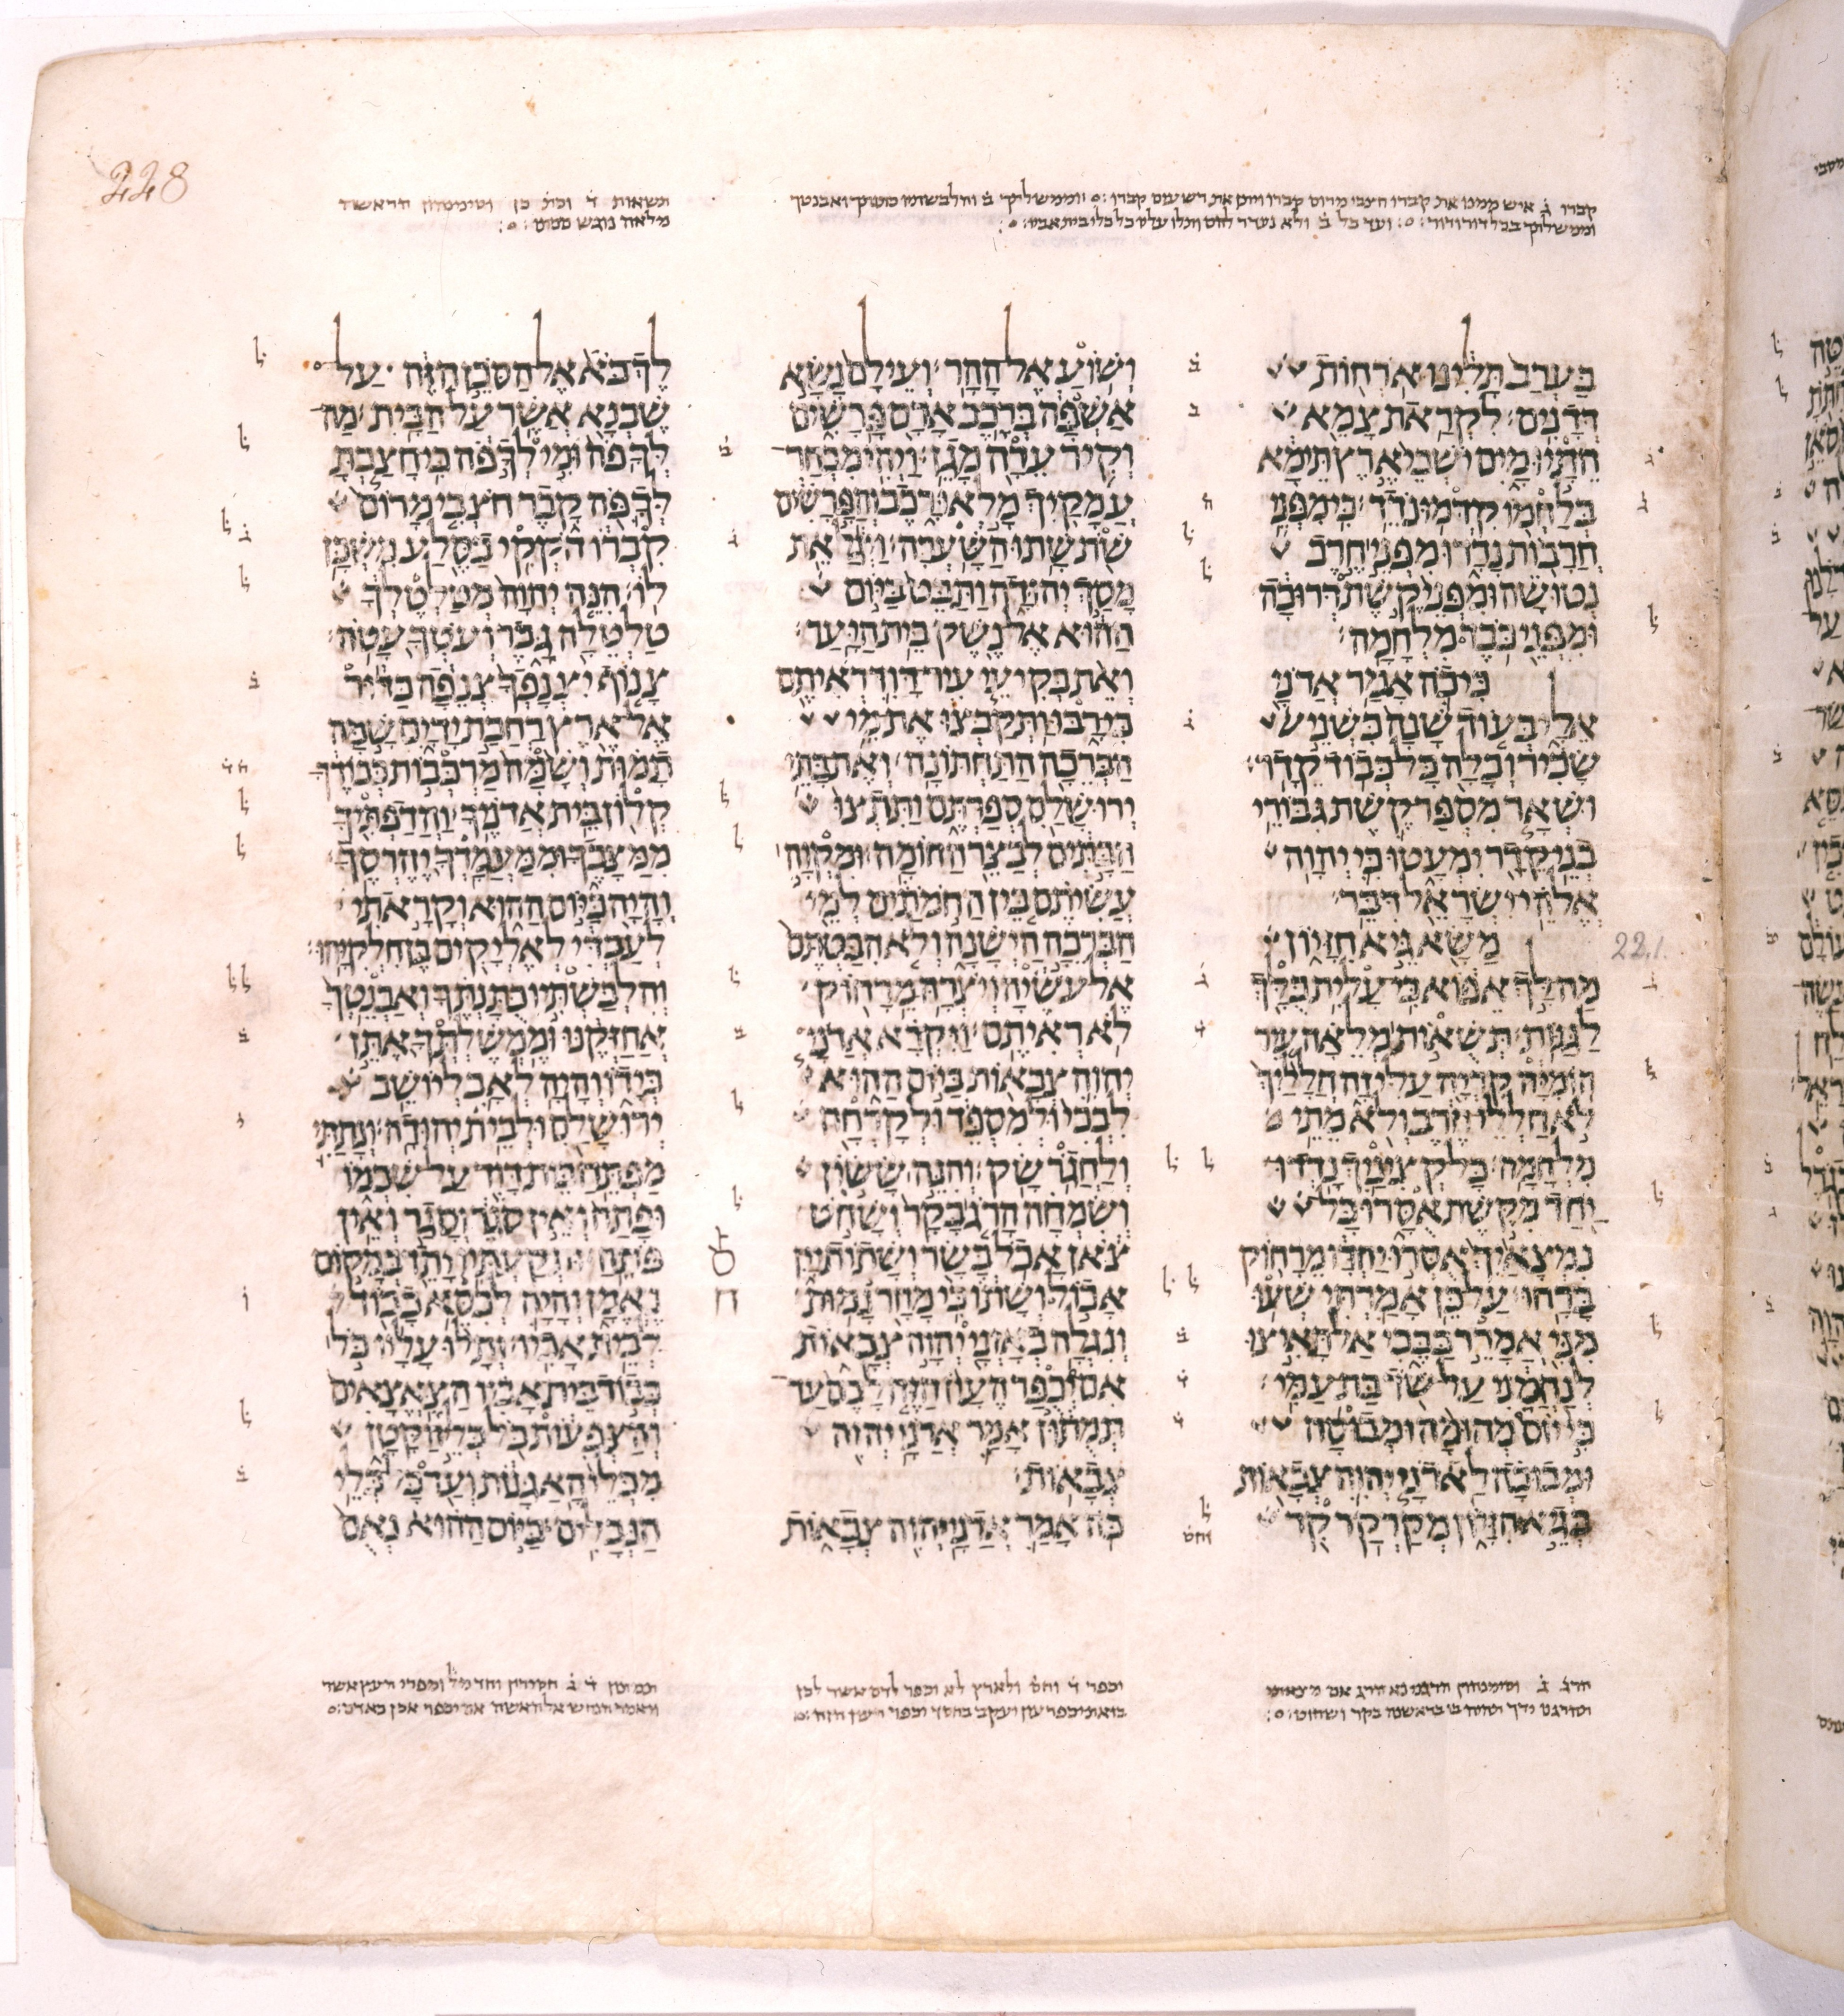 228
קברו ג איש ממנו את קברו חצבי מרום קברו ויתן את רשעים קברו וממשלתך ב והלבשתיו כתנתך ואבנטך
וממשלתך בכל דור ודור ועד כל ב ולא נעדר להם ותלו עליו כל כלי בית אביו
תשאות ד
מלאה נוגש
בערב תלינו ארחות
דדנים לקראת צמא
התיו מים ישבי ארץ תימא
בלחמו קדמו נדד כי מפני
חרבות נדדו מפני חרב
נטושה ומפני קשת דרוכה
ומפני כבד מלחמה
כי כה אמר אדני
אלי בעוד שנה כשני
שכיר וכלה כל כבוד קדר
ושאר מספר קשת גבורי
בני קדר ימעטו כי יהוה
אלהי ישראל דבר
משא גיא חזיון
22.1.
מה לך אפוא כי עלית כלך
לגגות תשאות מלאה עיר
הומיה קריה עליזה חלליך
לא חללי חרב ולא מתי
מלחמה כל קציניך נדדו
יחד מקשת אסרו כל
נמצאיך אסרו יחדו מרחוק
ברחו על כן אמרתי שעו
מני אמרר בבכי אל תאיצו
לנחמני על שד בת עמי
כי יום מהומה ומבוסה
ומבוכה לאדני יהוה צבאות
בגיא חזיון מקרקר קר
ושוע אל ההר ועילם נשא
אשפה ברכב אדם פרשים
וקיר ערה מגן ויהי מבחר
עמקיך מלאו רכב והפרשים
שת שתו השערה ויגל את
מסך יהודה ותבט ביום
ההוא אל נשק בית היער
ואת בקיעי עיר דוד ראיתם
כי רבו ותקבצו את מי
הברכה התחתונה ואת בתי
ירושלם ספרתם ותתצו
הבתים לבצר החומה ומקוה
עשיתם בין החמתים למי
הברכה הישנה ולא הבטתם
אל עשיה ויצרה מרחוק
לא ראיתם ויקרא אדני
יהוה צבאות ביום ההוא
לבכי ולמספד ולקרחה
ולחגר שק והנה ששון
ושמחה הרג בקר ושחט
צאן אכל בשר ושתות יין
אכול ושתו כי מחר נמות
ונגלה באזני יהוה צבאות
אם יכפר העון הזה לכם עד
תמתון אמר אדני יהוה
צבאות
כה אמר אדני יהוה צבאות
לך בא אל הסכן הזה על
שבנא אשר על הבית מה
לך פה ומי לך פה כי חצבת
לך פה קבר חצבי מרום
קברו חקקי בסלע משכן
לו הנה יהוה מטלטלך
טלטלה גבר ועטך עטה
צנוף יצנפך צנפה כדור
אל ארץ רחבת ידים שמה
תמות ושמה מרכבות כבודך
קלון בית אדניך והדפתיך
ממצבך וממעמדך יהרסך
והיה ביום ההוא וקראתי
לעבדי לאליקים בן חלקיהו
והלבשתיו כתנתך ואבנטך
אחזקנו וממשלתך אתן
בידו והיה לאב ליושב
ירושלם ולבית יהודה ונתתי
מפתח בית דוד על שכמו
ופתח ואין סגר וסגר ואין
פותח ותקעתיו יתד במקום
נאמן והיה לכסא כבוד
לבית אביו ותלו עליו כל
כבוד בית אביו הצאצאים
והצפעות כל כלי הקטן
מכלי האגנות ועד כל כלי
הנבלים ביום ההוא נאם